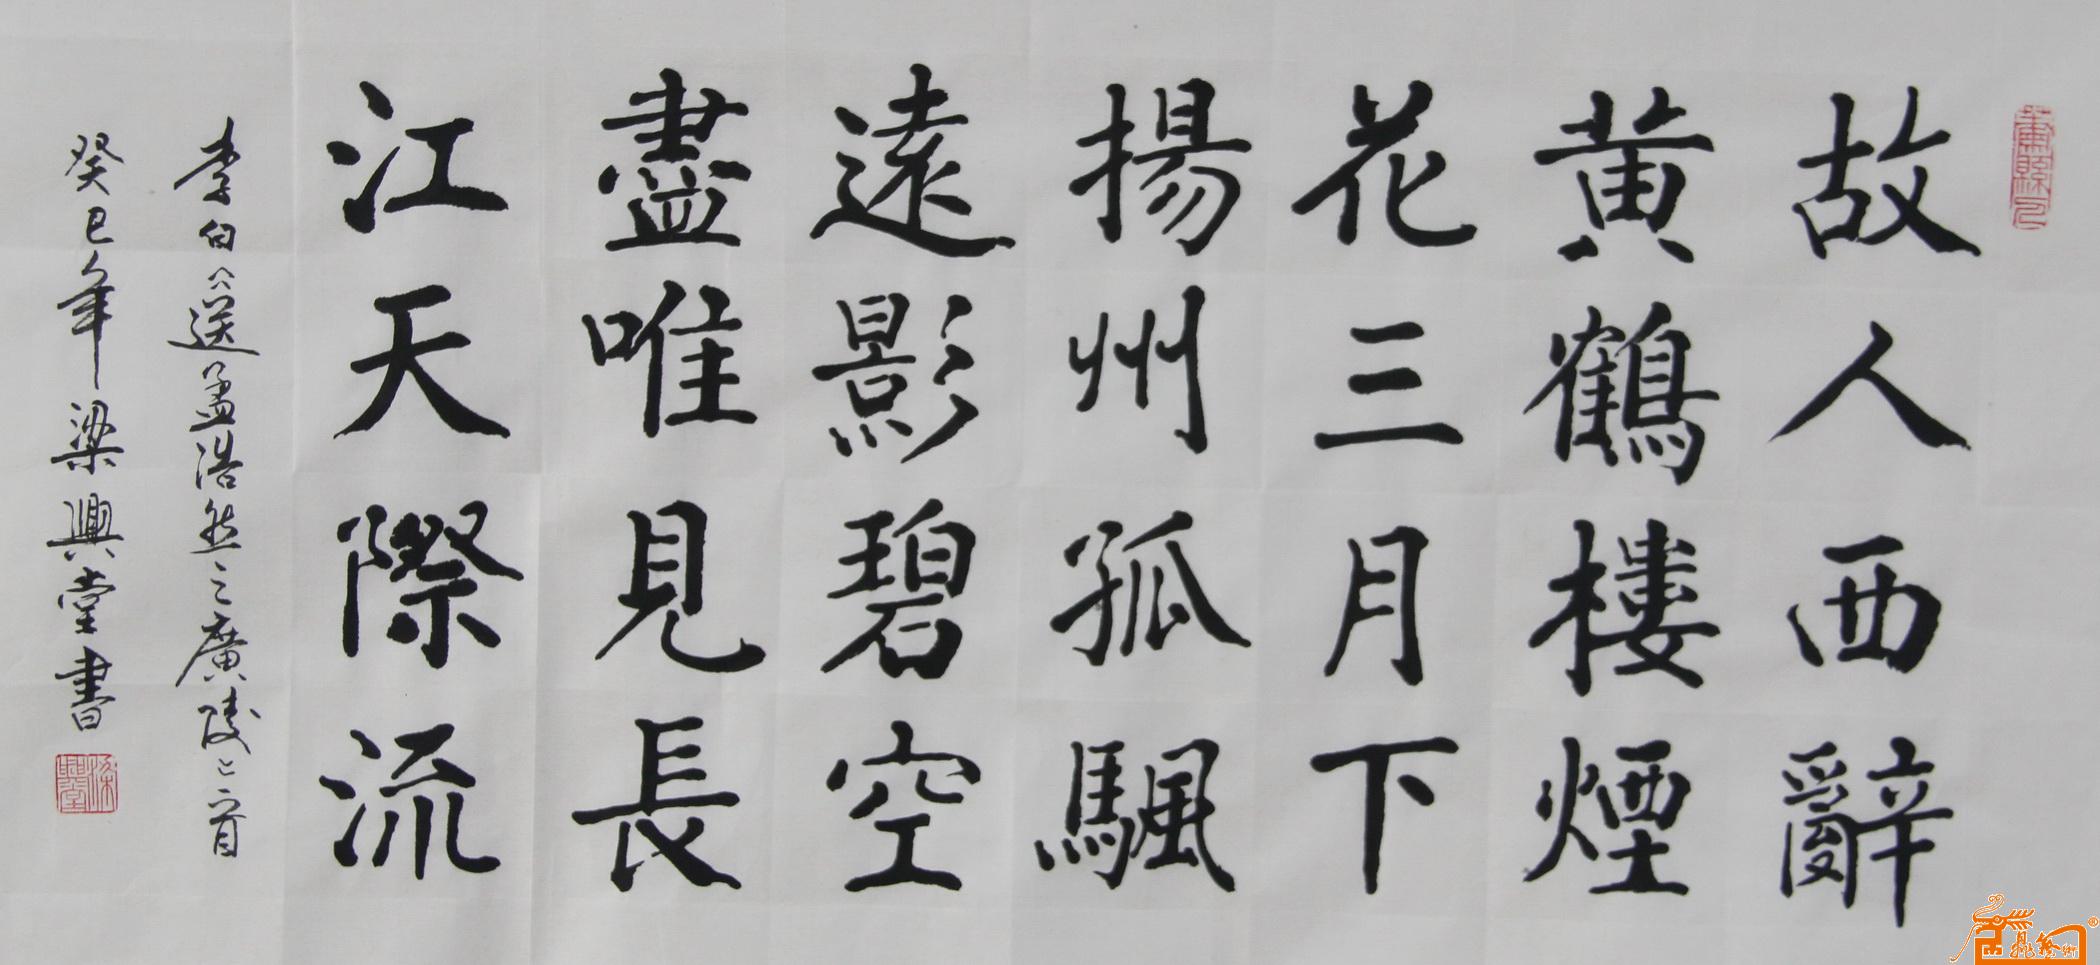 故人西辭
黄鶴樓煙
花三月下
揚州孤颿
遠影碧空
盡唯見長
江天際流
李白《送孟浩然之廣陵》一首
癸巳年梁興堂書
梁興堂